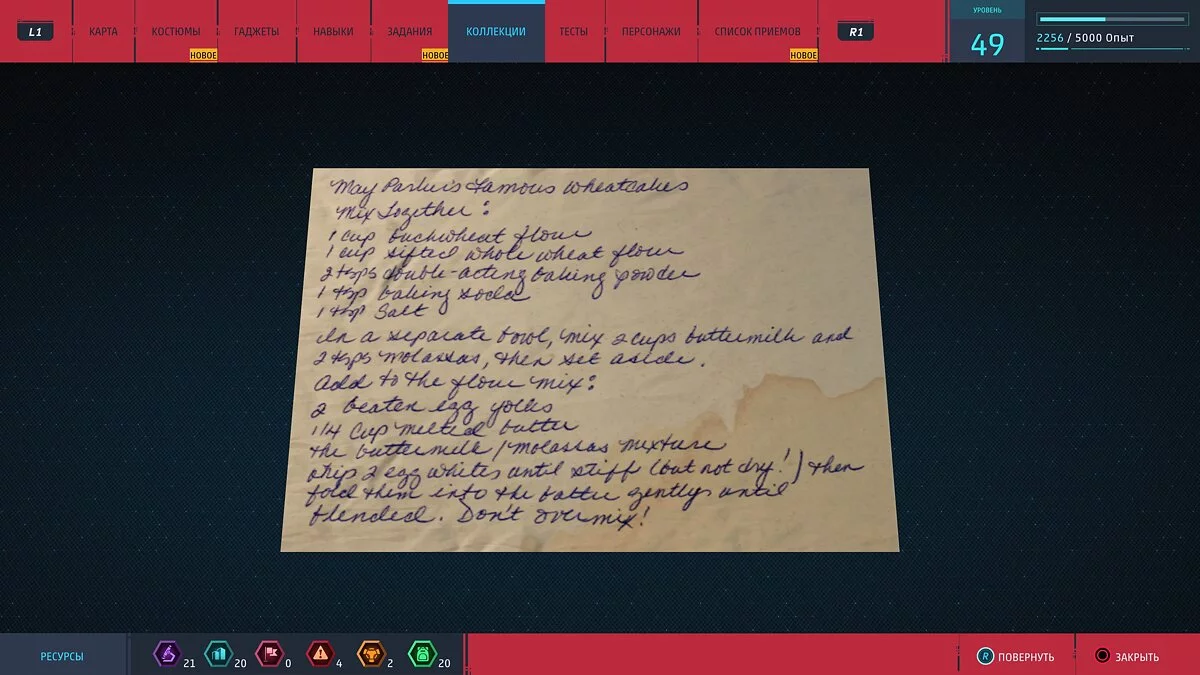 L1
КАРТА
КОСТЮМЫ
НОВОЕ
ГАДЖЕТЫ
НАВЫКИ
ЗАДАНИЯ
НОВОЕ
КОЛЛЕКЦИИ
ТЕСТЫ
ПЕРСОНАЖИ
СПИСОК ПРИЕМОВ
НОВОЕ
R1
УРОВЕНЬ
49
2256 / 5000 Опыт
May Parker's Famous Wheatcakes
Mix Together:
1 cup buckwheat flour
1 cup sifted whole wheat flour
2 tsps double-acting baking powder
1 tsp baking soda
1 tsp Salt
In a separate bowl, mix 2 cups buttermilk and
2 tsps molassas, then set aside.
Add to the flour mix:
2 beaten egg yolks
1/4 Cup melted butter
the buttermilk/molassas mixture
whip 2 egg whites until stiff (but not dry!) then
fold them into the batter gently until
blended. Don't overmix!
РЕСУРСЫ
21
20
0
4
2
20
R ПОВЕРНУТЬ
ЗАКРЫТЬ